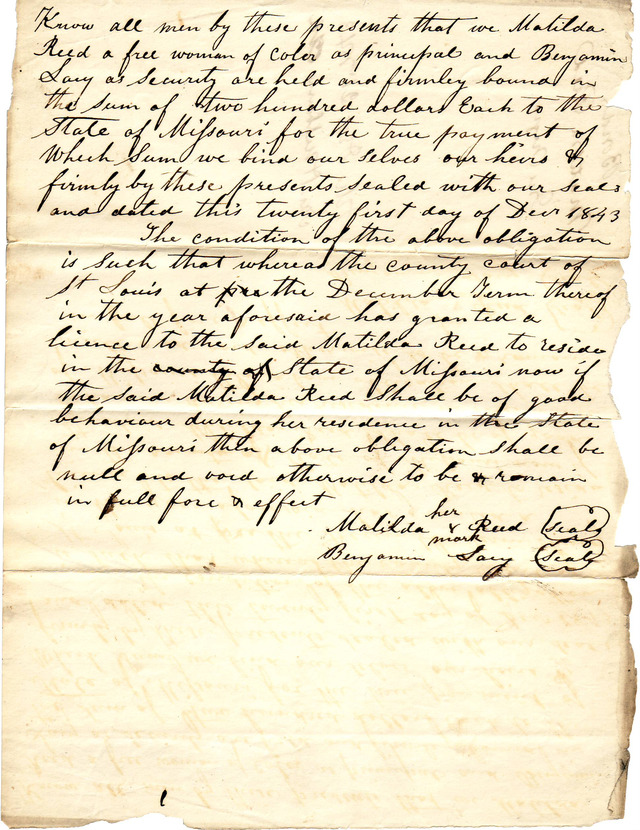 Know all men by these presents that we Matilda
Reed a free woman of color as principal and Benjamin
Lacy as security are held and firmley bound in
the sum of two hundred dollars Each to the
State of Missouri for the true payment of
Which Sum we bind our selves our heirs &
firmly by these presents sealed with our seals
and dated this twenty first day of Decr 1843
The condition of the above obligation
is such that whereas the county court of
St Louis at the December Term thereof
in the year aforesaid has granted a
licence to the said Matilda Reed to reside
in the county of State of Missouri now if
the said Matilda Reed Shall be of good
behaviour during her residence in the State
of Missouri then above obligation shall be
null and void otherwise to be & remain
in full force & effect
her
Matilda x Reed (seal)
mark
Benjamin Lacy (seal)